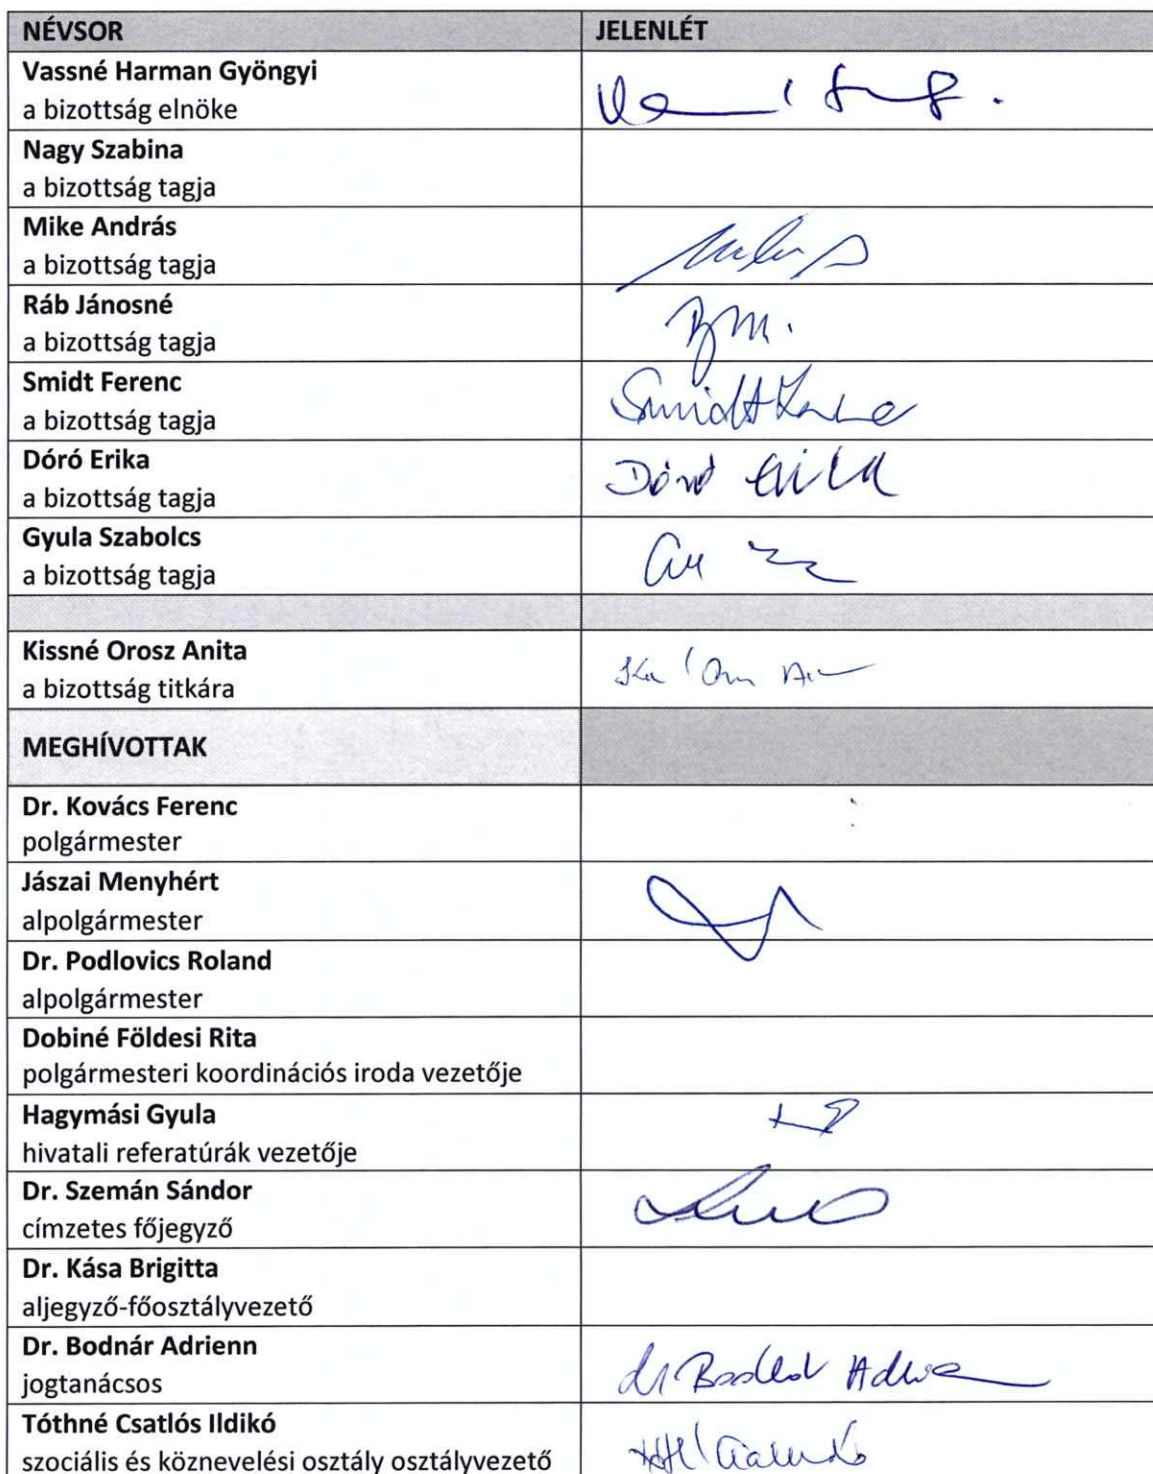 NÉVSOR JELENLÉT
Vassné Harman Gyöngyi
a bizottság elnöke
Nagy Szabina
a bizottság tagja
Mike András
a bizottság tagja
Ráb Jánosné
a bizottság tagja
Smidt Ferenc
a bizottság tagja
Smidt
Dóró Erika
a bizottság tagja
Dóró Erika
Gyula Szabolcs
a bizottság tagja
Kissné Orosz Anita
a bizottság titkára
MEGHÍVOTTAK
Dr. Kovács Ferenc
polgármester
Jászai Menyhért
alpolgármester
Dr. Podlovics Roland
alpolgármester
Dobiné Földesi Rita
polgármesteri koordinációs iroda vezetője
Hagymási Gyula
hivatali referatúrák vezetője
Dr. Szemán Sándor
címzetes főjegyző
Dr. Kása Brigitta
aljegyző-főosztályvezető
Dr. Bodnár Adrienn
jogtanácsos
Tóthné Csatlós Ildikó
szociális és köznevelési osztály osztályvezető